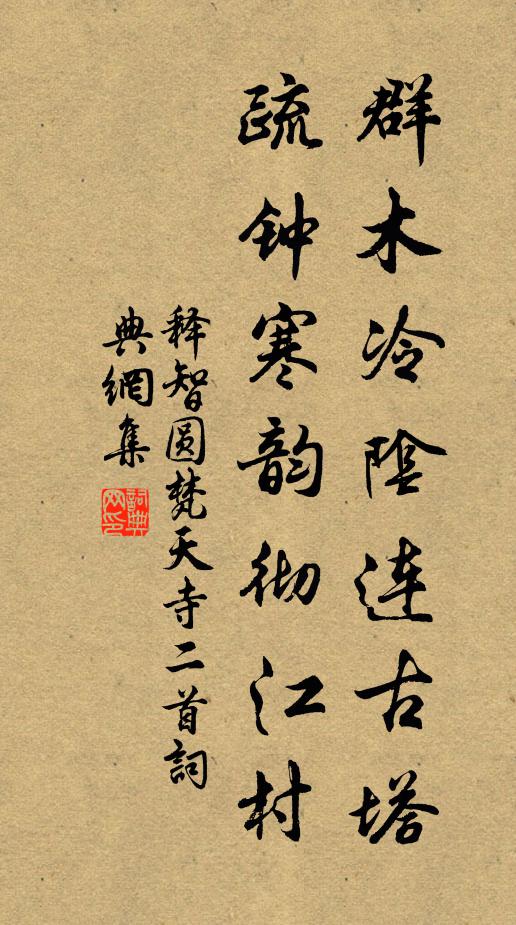 群木冷陰连古塔
疏钟寒韵彻江村
释智圆梵天寺二首詞
典網集
詞典网印